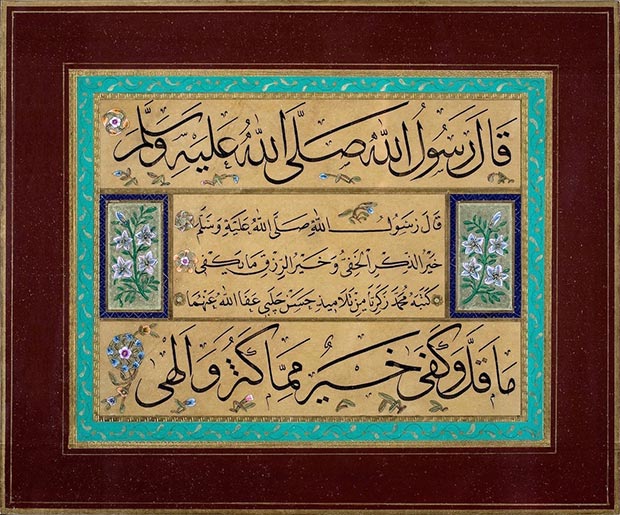 قَالَ رَسُولُ اللهِ صَلَّى اللهُ عَلَيْهِ وَسَلَّمَ
قَالَ رَسُولُ اللهِ صَلَّى اللهُ عَلَيْهِ وَسَلَّمَ
خَيْرُ الذِّكْرِ الْخَفِيُّ وَخَيْرُ الرِّزْقِ مَا يَكْفِي
كَتَبَهُ مُحَمَّد زَكَرِيَّا مِنْ تَلَامِيذِ حَسَن چَلَبِي عَفَا اللهُ عَنْهُمَا
مَا قَلَّ وَكَفَى خَيْرٌ مِمَّا كَثُرَ وَأَلْهَى